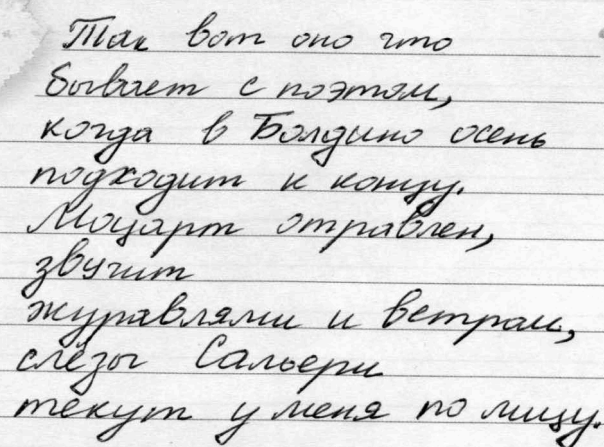 Так вот оно что
бывает с поэтом,
когда в Болдино осень
подходит к концу.
Моцарт отравлен,
звучит
журавлями и ветром,
слёзы Сальери
текут у меня по лицу.